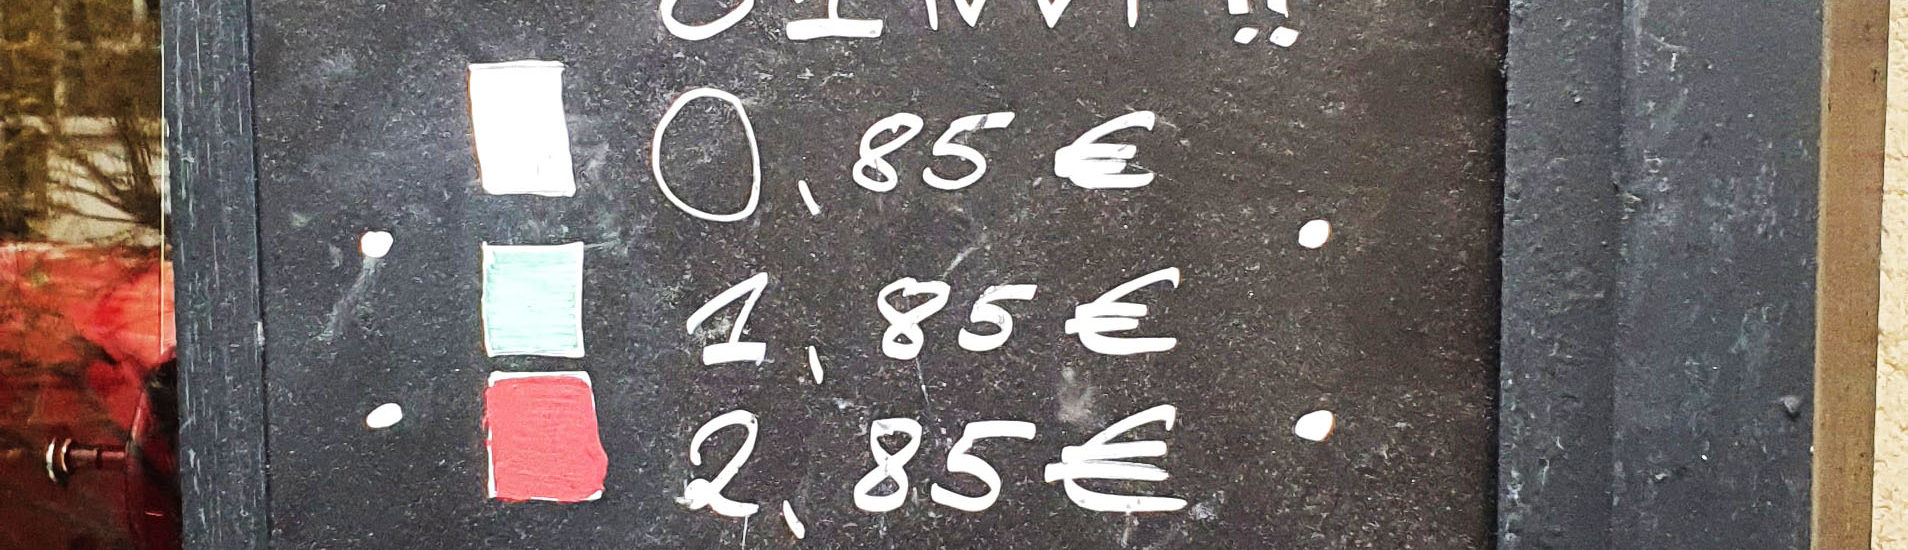 0,85 €
1,85 €
2,85 €